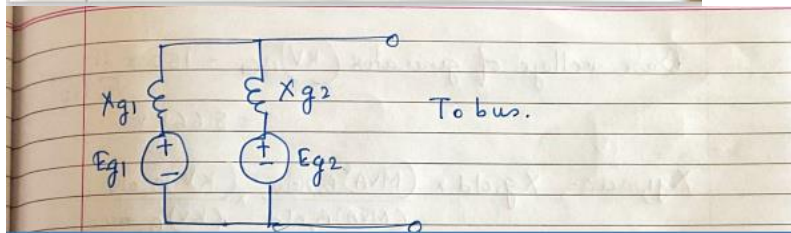 Xg1
Xg2
To bus.
+
-
Eg1
+
-
Eg2